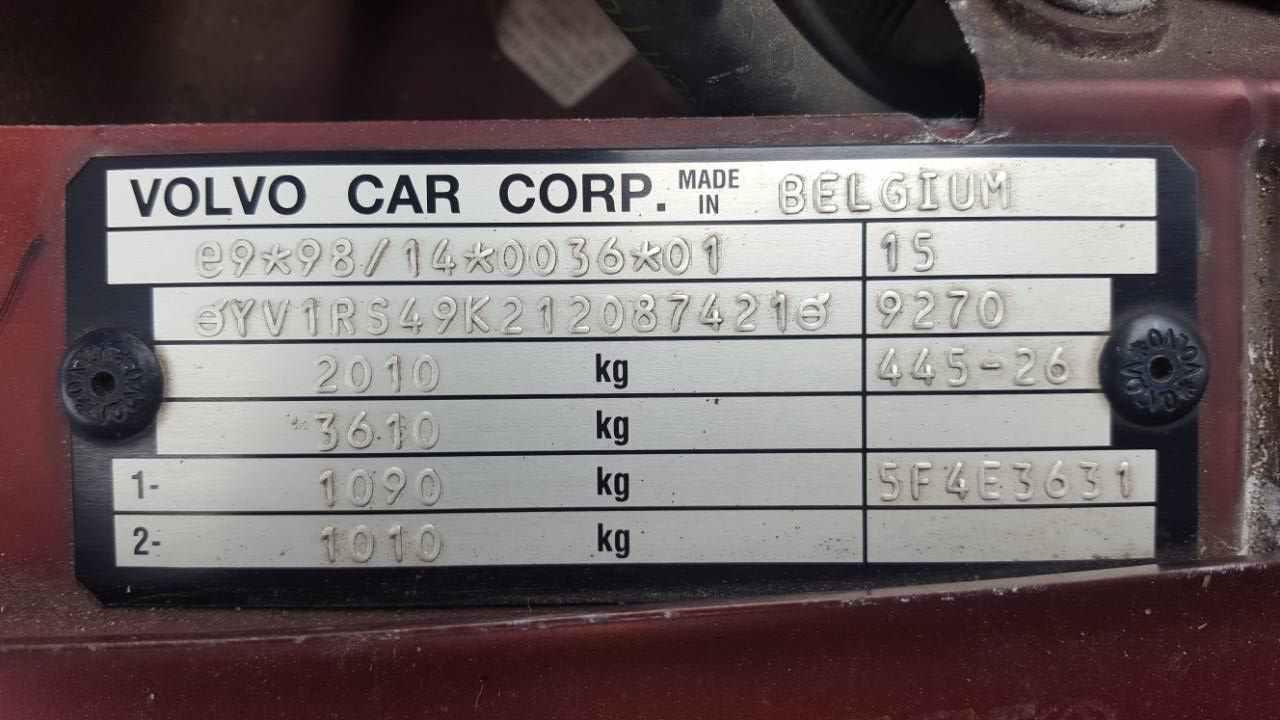 VOLVO CAR CORP. MADE IN BELGIUM
e9*98/14*0036*01 15
YV1RS49K212087421 9270
2010 kg 445-26
3610 kg
1- 1090 kg 5F4E3631
2- 1010 kg